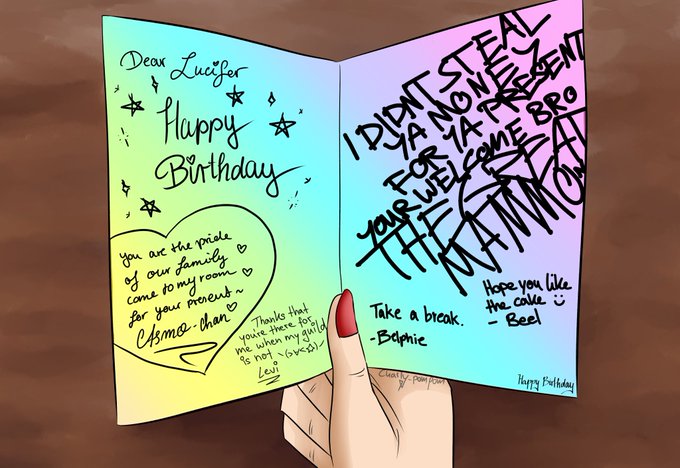 Dear Lucifer
Happy
Birthday
You are the pride
of our family
come to my room
for your present~
Asmo-chan
Thanks that
you're there for
me when my guild
is not ヽ(>∀<☆)ノ
Levi
I DIDNT STEAL
YA MONEY
FOR YA PRESENT
YOUR WELCOME BRO
THE GREAT
MAMMON
Take a break.
-Belphie
Hope you like
the cake
- Beel
Charly-pompom
Happy Birthday